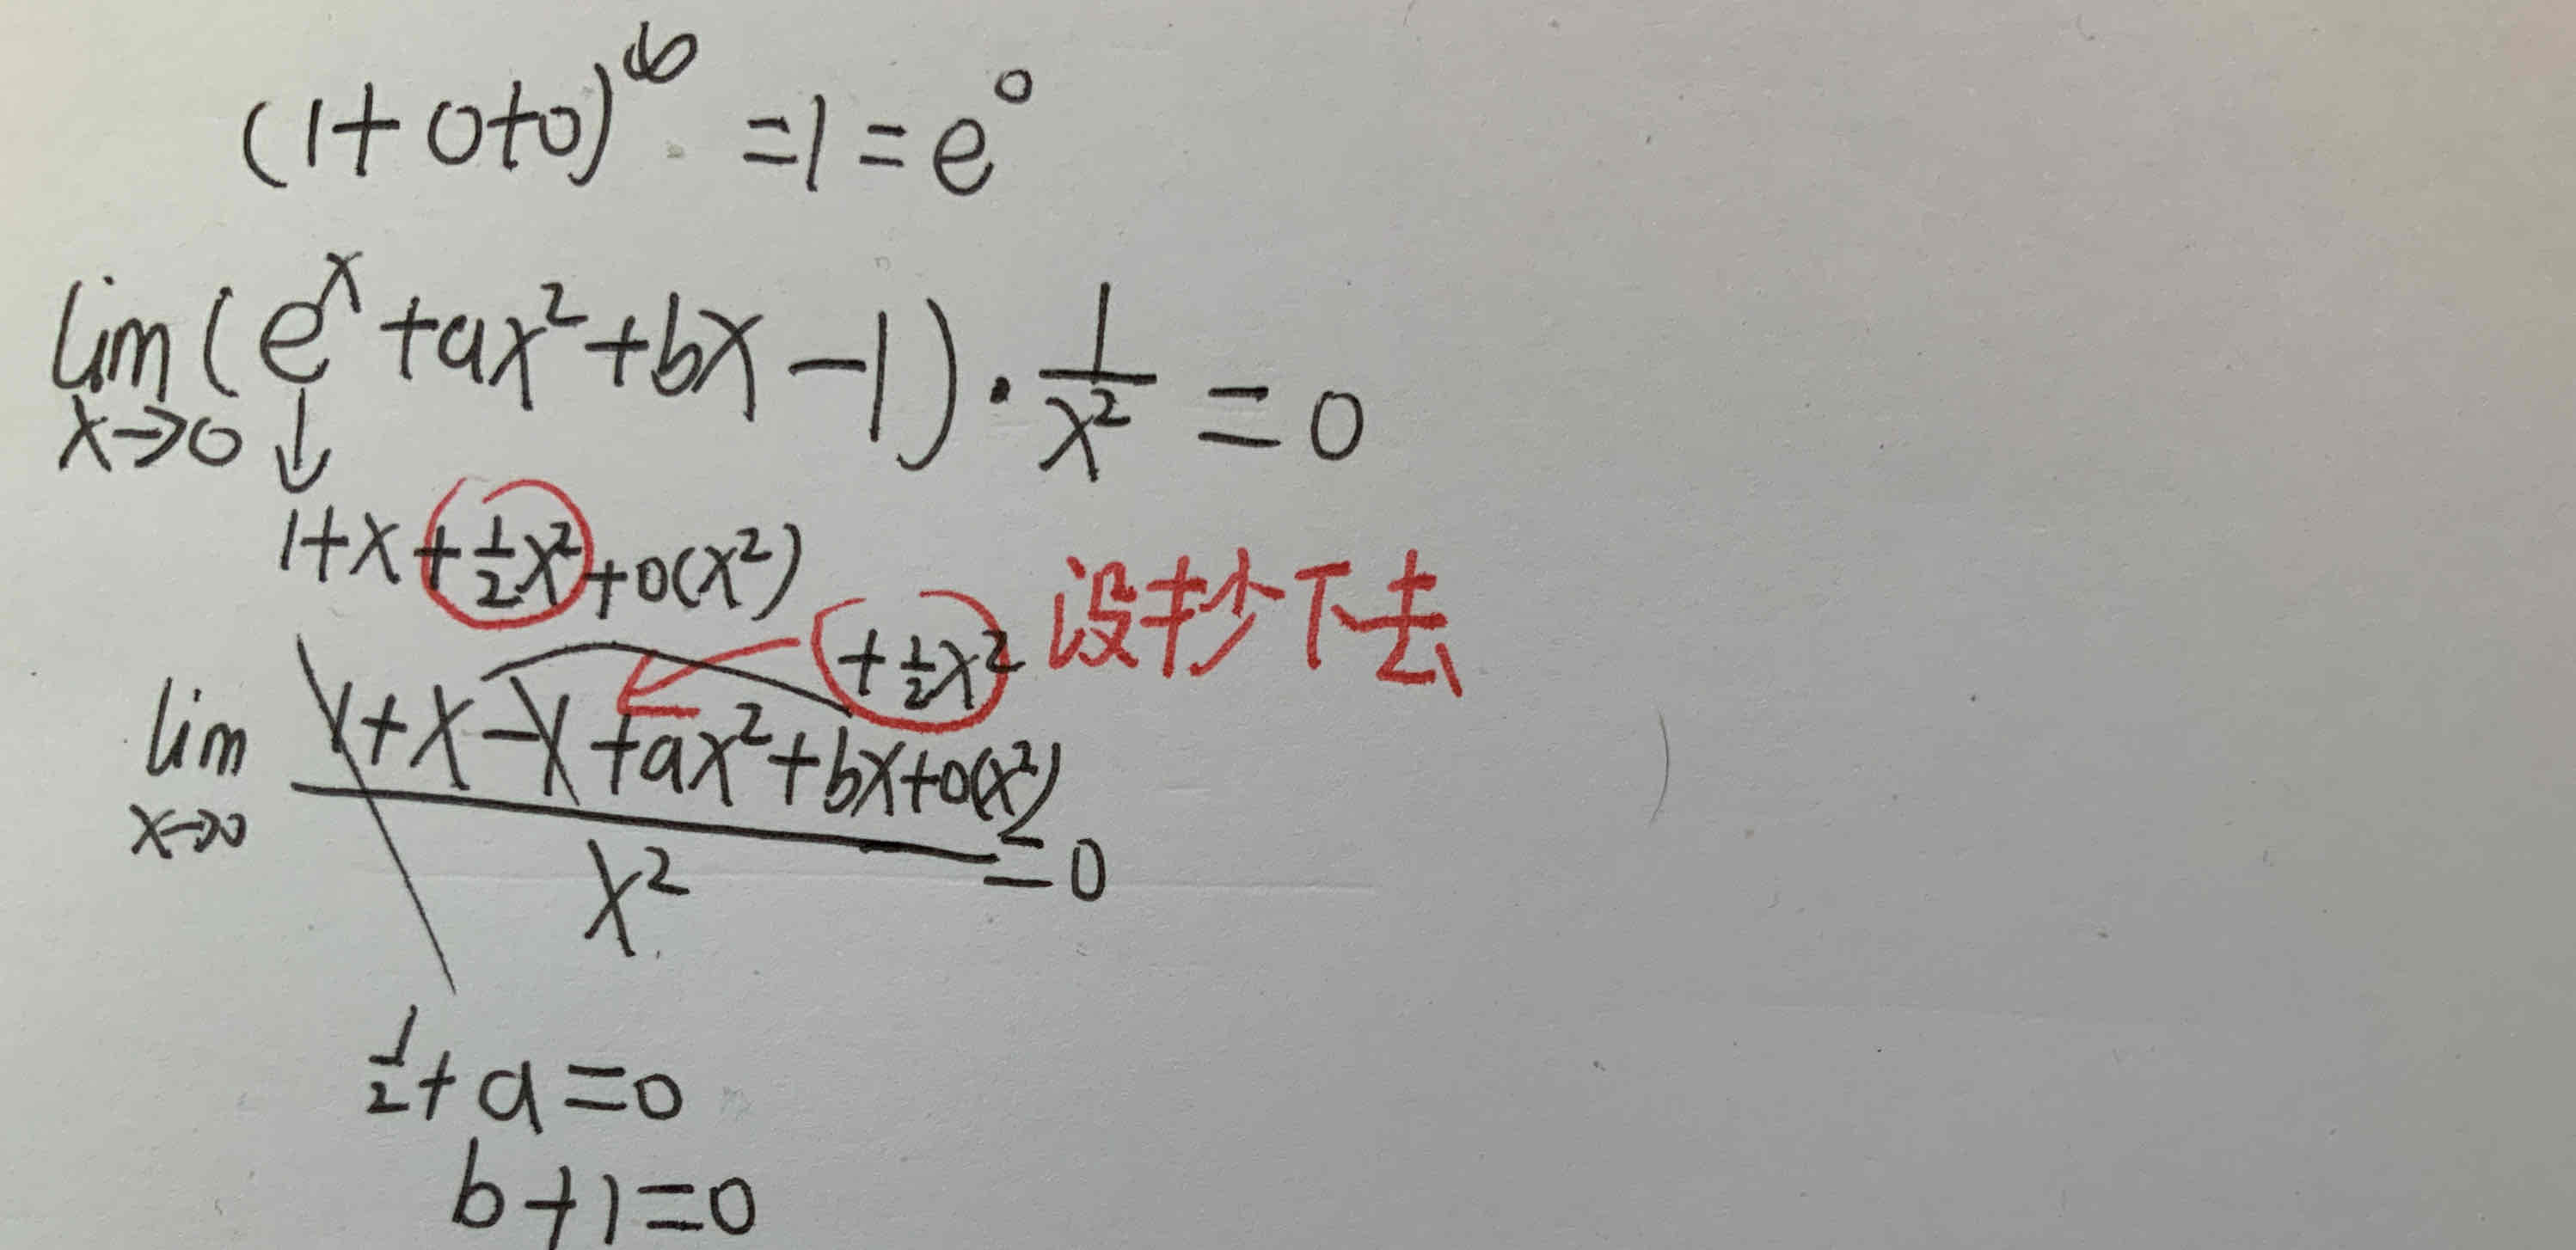 (1+0+0)^∞ =1=e^0
lim(e^x+ax²+bx-1)·1/x² =0
x→0 ↓
1+x+½x²+o(x²)
+½x² 没抄下去
lim 1+x-1+ax²+bx+o(x²)
x→0 x² =0
½+a=0
b+1=0